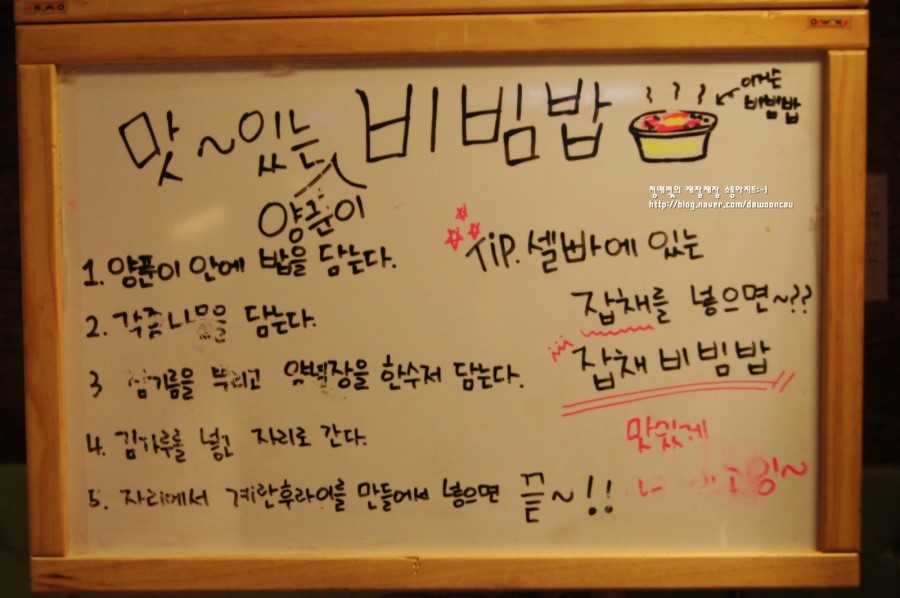 맛~있는 비빔밥
양푼이
이거슨
비빔밥
정매력의 재잘재잘 소통아지트:-)
http://blog.naver.com/dawooncau
1. 양푼이 안에 밥을 담는다.
2. 각종 나물을 담는다.
3 참기름을 뿌리고 양념장을 한수저 담는다.
4. 김가루를 넣고 자리로 간다.
5. 자리에서 계란후라이를 만들어서 넣으면 끝~!!
Tip. 셀빠에 있는
잡채를 넣으면~??
잡채 비빔밥
맛있게